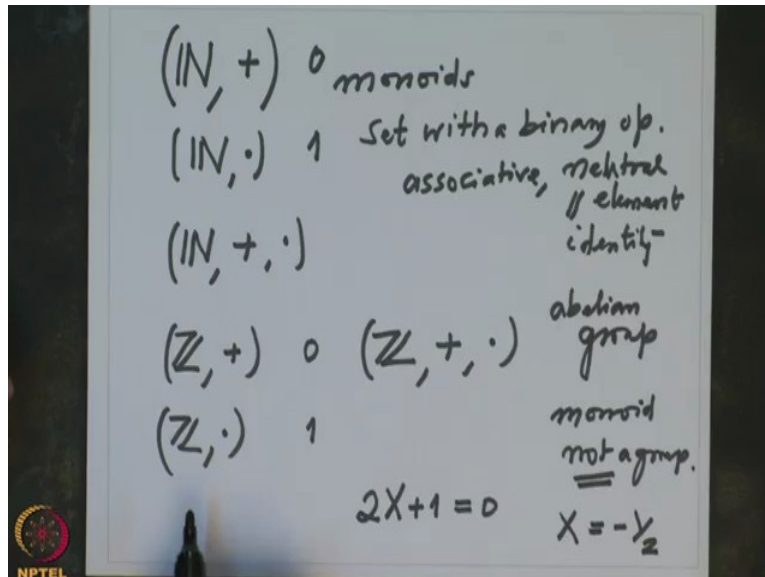 (ℕ, +) 0 monoids
(ℕ, ·) 1 set with a binary op.
associative, neutral
|| element
identity
(ℕ, +, ·)
(ℤ, +) 0 (ℤ, +, ·) abelian group
(ℤ, ·) 1 monoid
not a group.
2X+1=0 X = -1/2
NPTEL